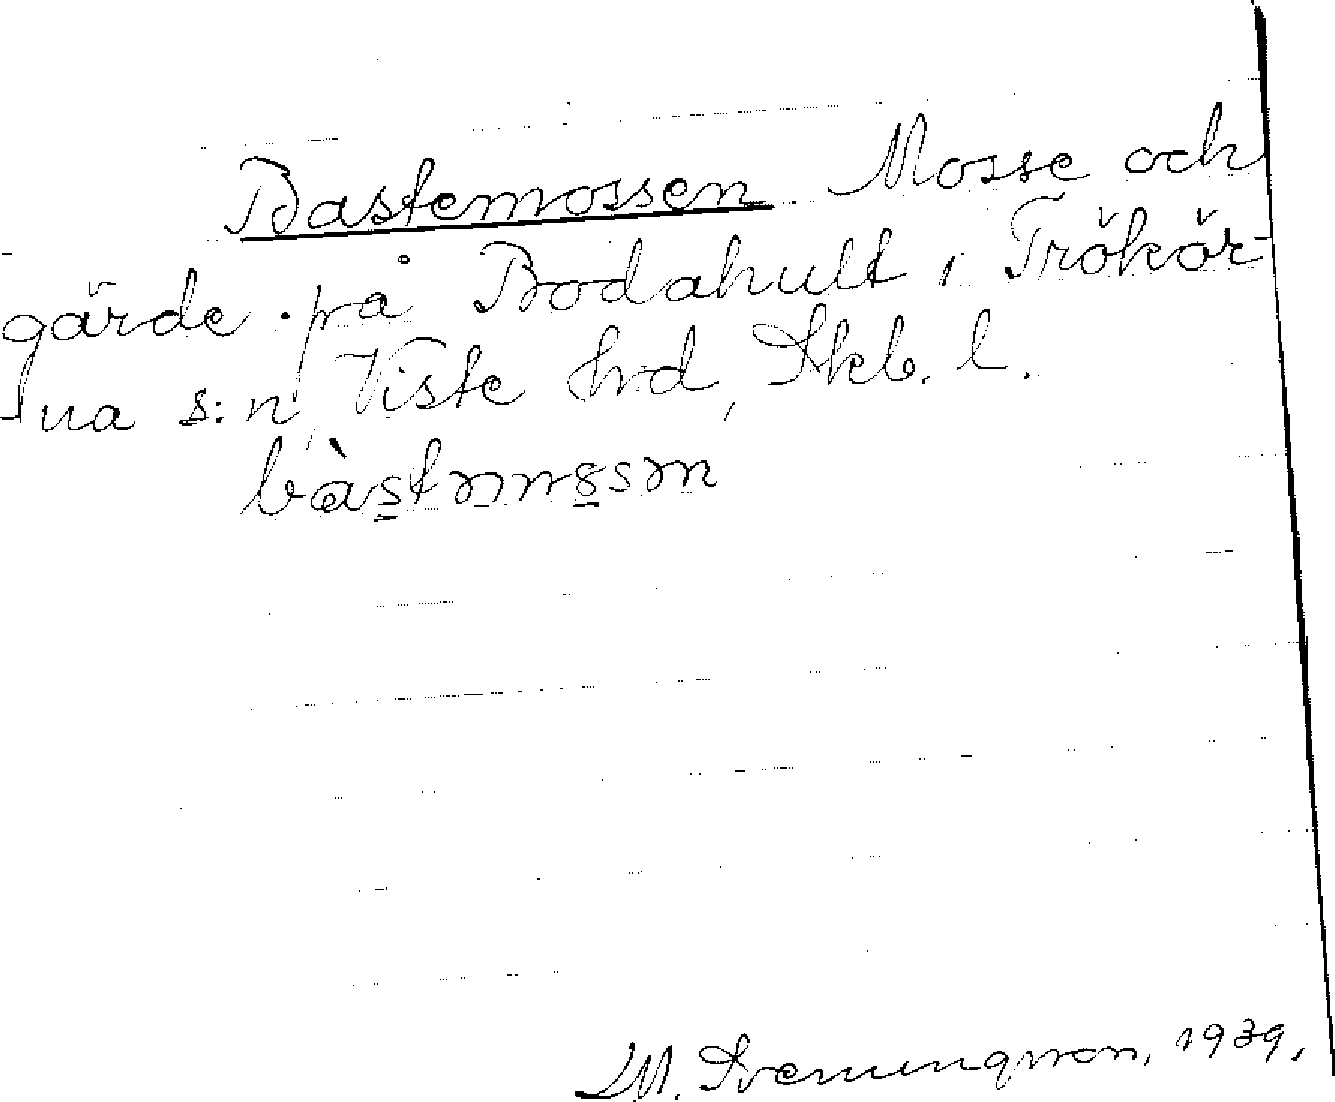 Bastemossen Mosse och
gärde på Bodahult, Trökör-
na s:n, Viste hrd, Skb. l.
M. Svenungsson, 1939.